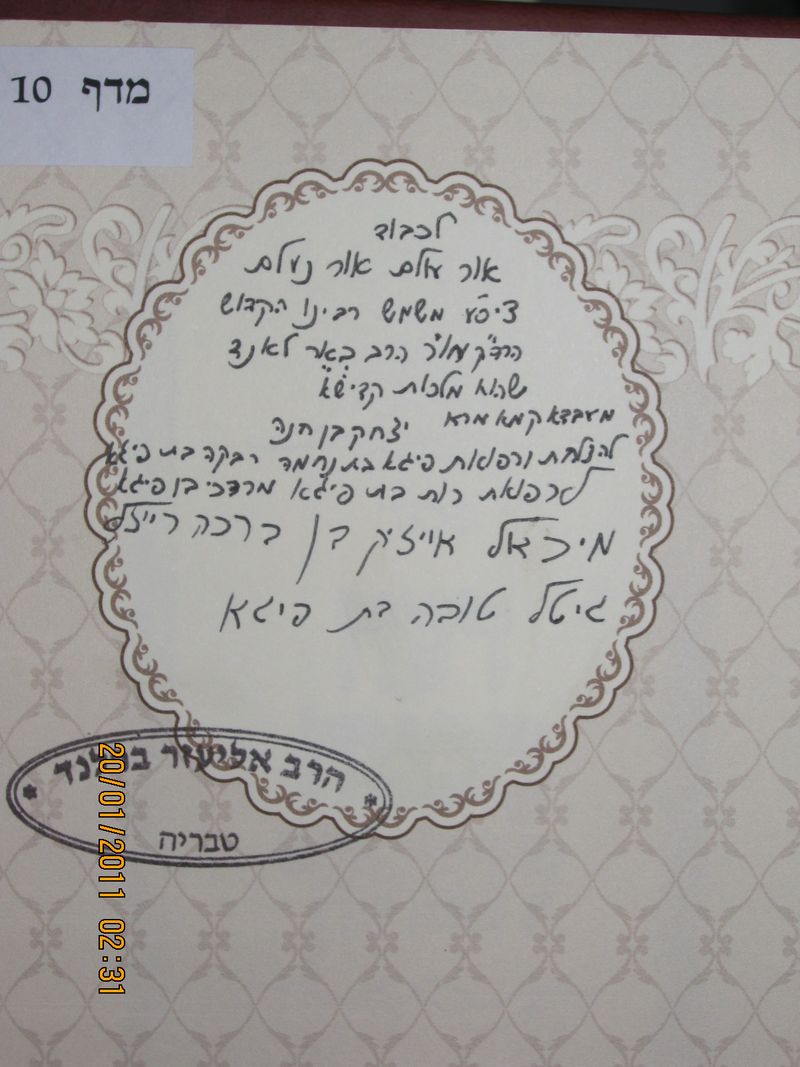 מדף 10
לכבוד
אור עולם אור נעלם
משמש רבינו הקדוש
הרב בער לאנד
שהוא מלכות קדישא
מעבדא קמא מרא יצחק בן חנה
להצלחת ורפואת פיגא בת נחמה רבקה בת פיגא
לרפואת רות בת פיגא מרדכי בן פיגא
מיכאל אייזיק בן ברכה רייזל
גיטל טובה בת פיגא
הרב אליעזר ברלנד
טבריה
20/01/2011 02:31